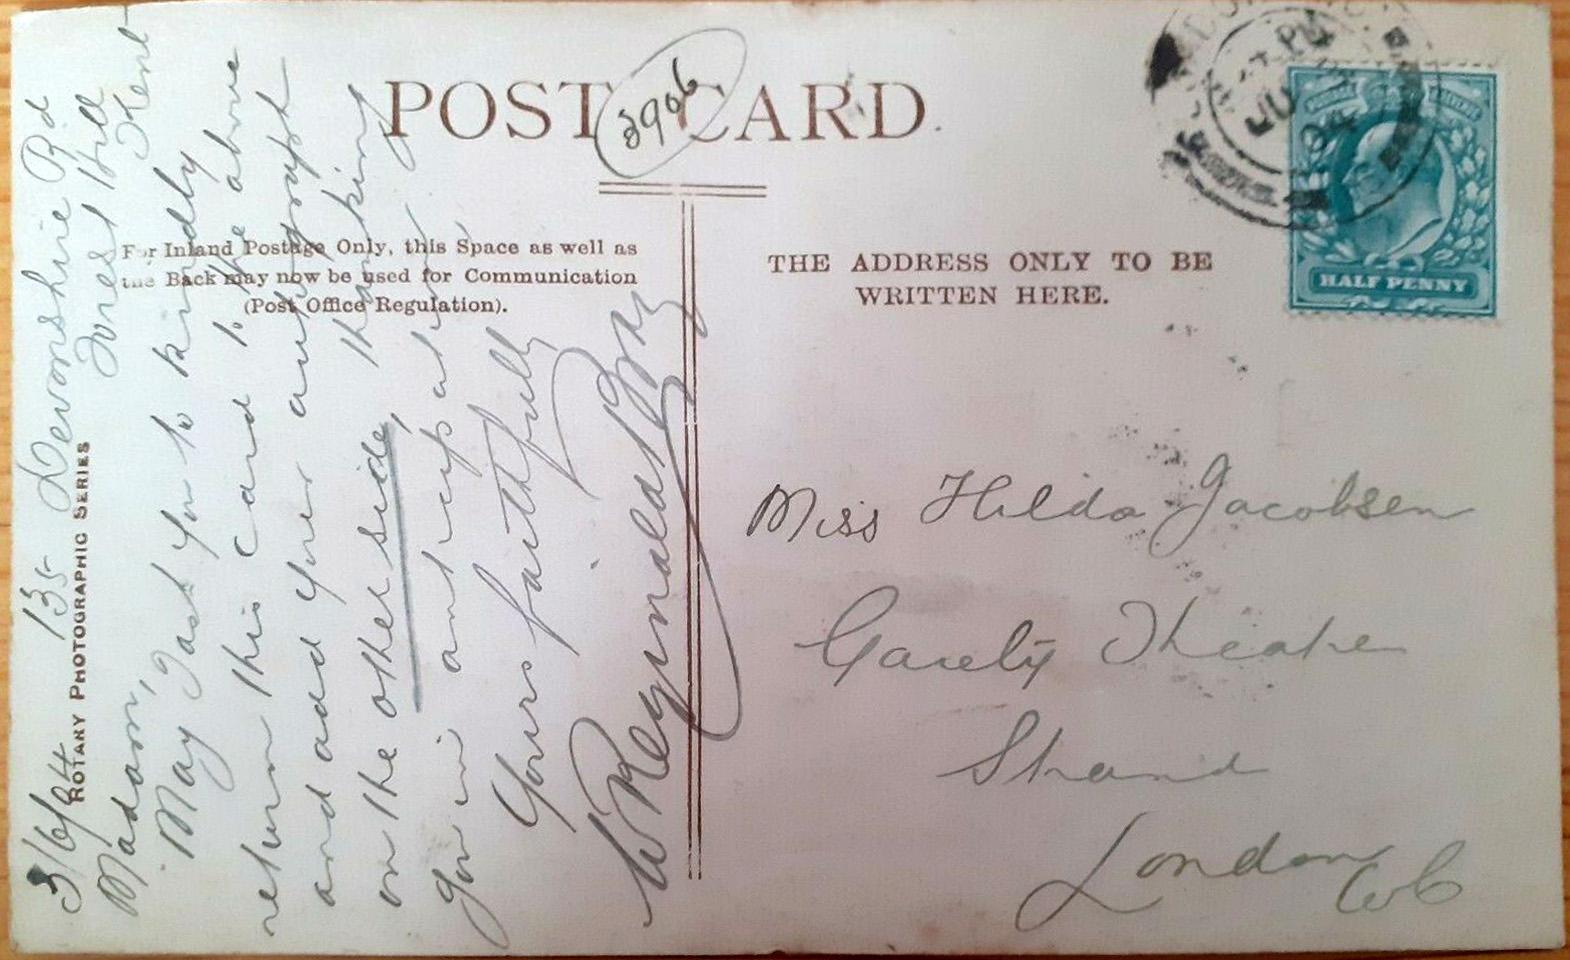 POST CARD
3906
For Inland Postage Only, this Space as well as
the Back may now be used for Communication
(Post Office Regulation).
THE ADDRESS ONLY TO BE
WRITTEN HERE.
HALF PENNY
ROTARY PHOTOGRAPHIC SERIES
3/6/04 135 Devonshire Rd
Forest Hill
Kent
Madam,
May I ask you to kindly
return this card to the above
and add your autograph
on the other side, thanking
you in anticipation
Yours faithfully
W Reginald Bray
Miss Hilda Jacobsen
Gaiety Theatre
Strand
London
WC